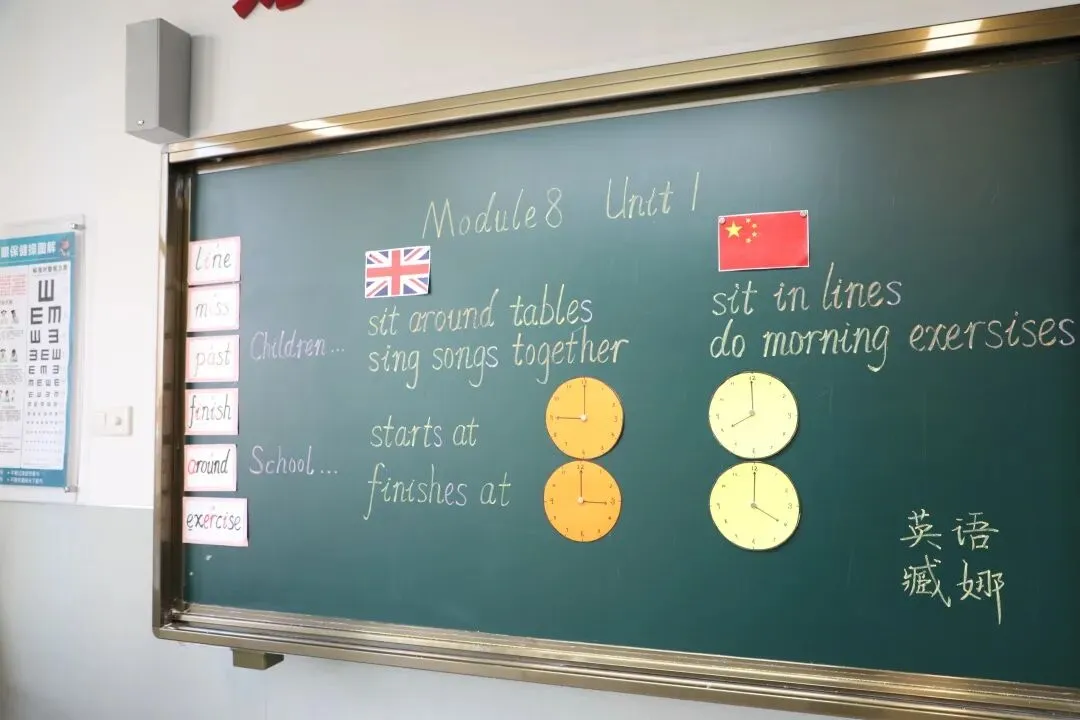 Module 8 Unit 1
line
miss
past
finish
around
exercise
Children...
School...
sit around tables
sing songs together
starts at
finishes at
sit in lines
do morning exersises
英语
臧娜